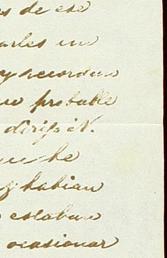 s de ese
arles un
y recordan
probable
dirijiN.
he
habian
estaban
ocasionar